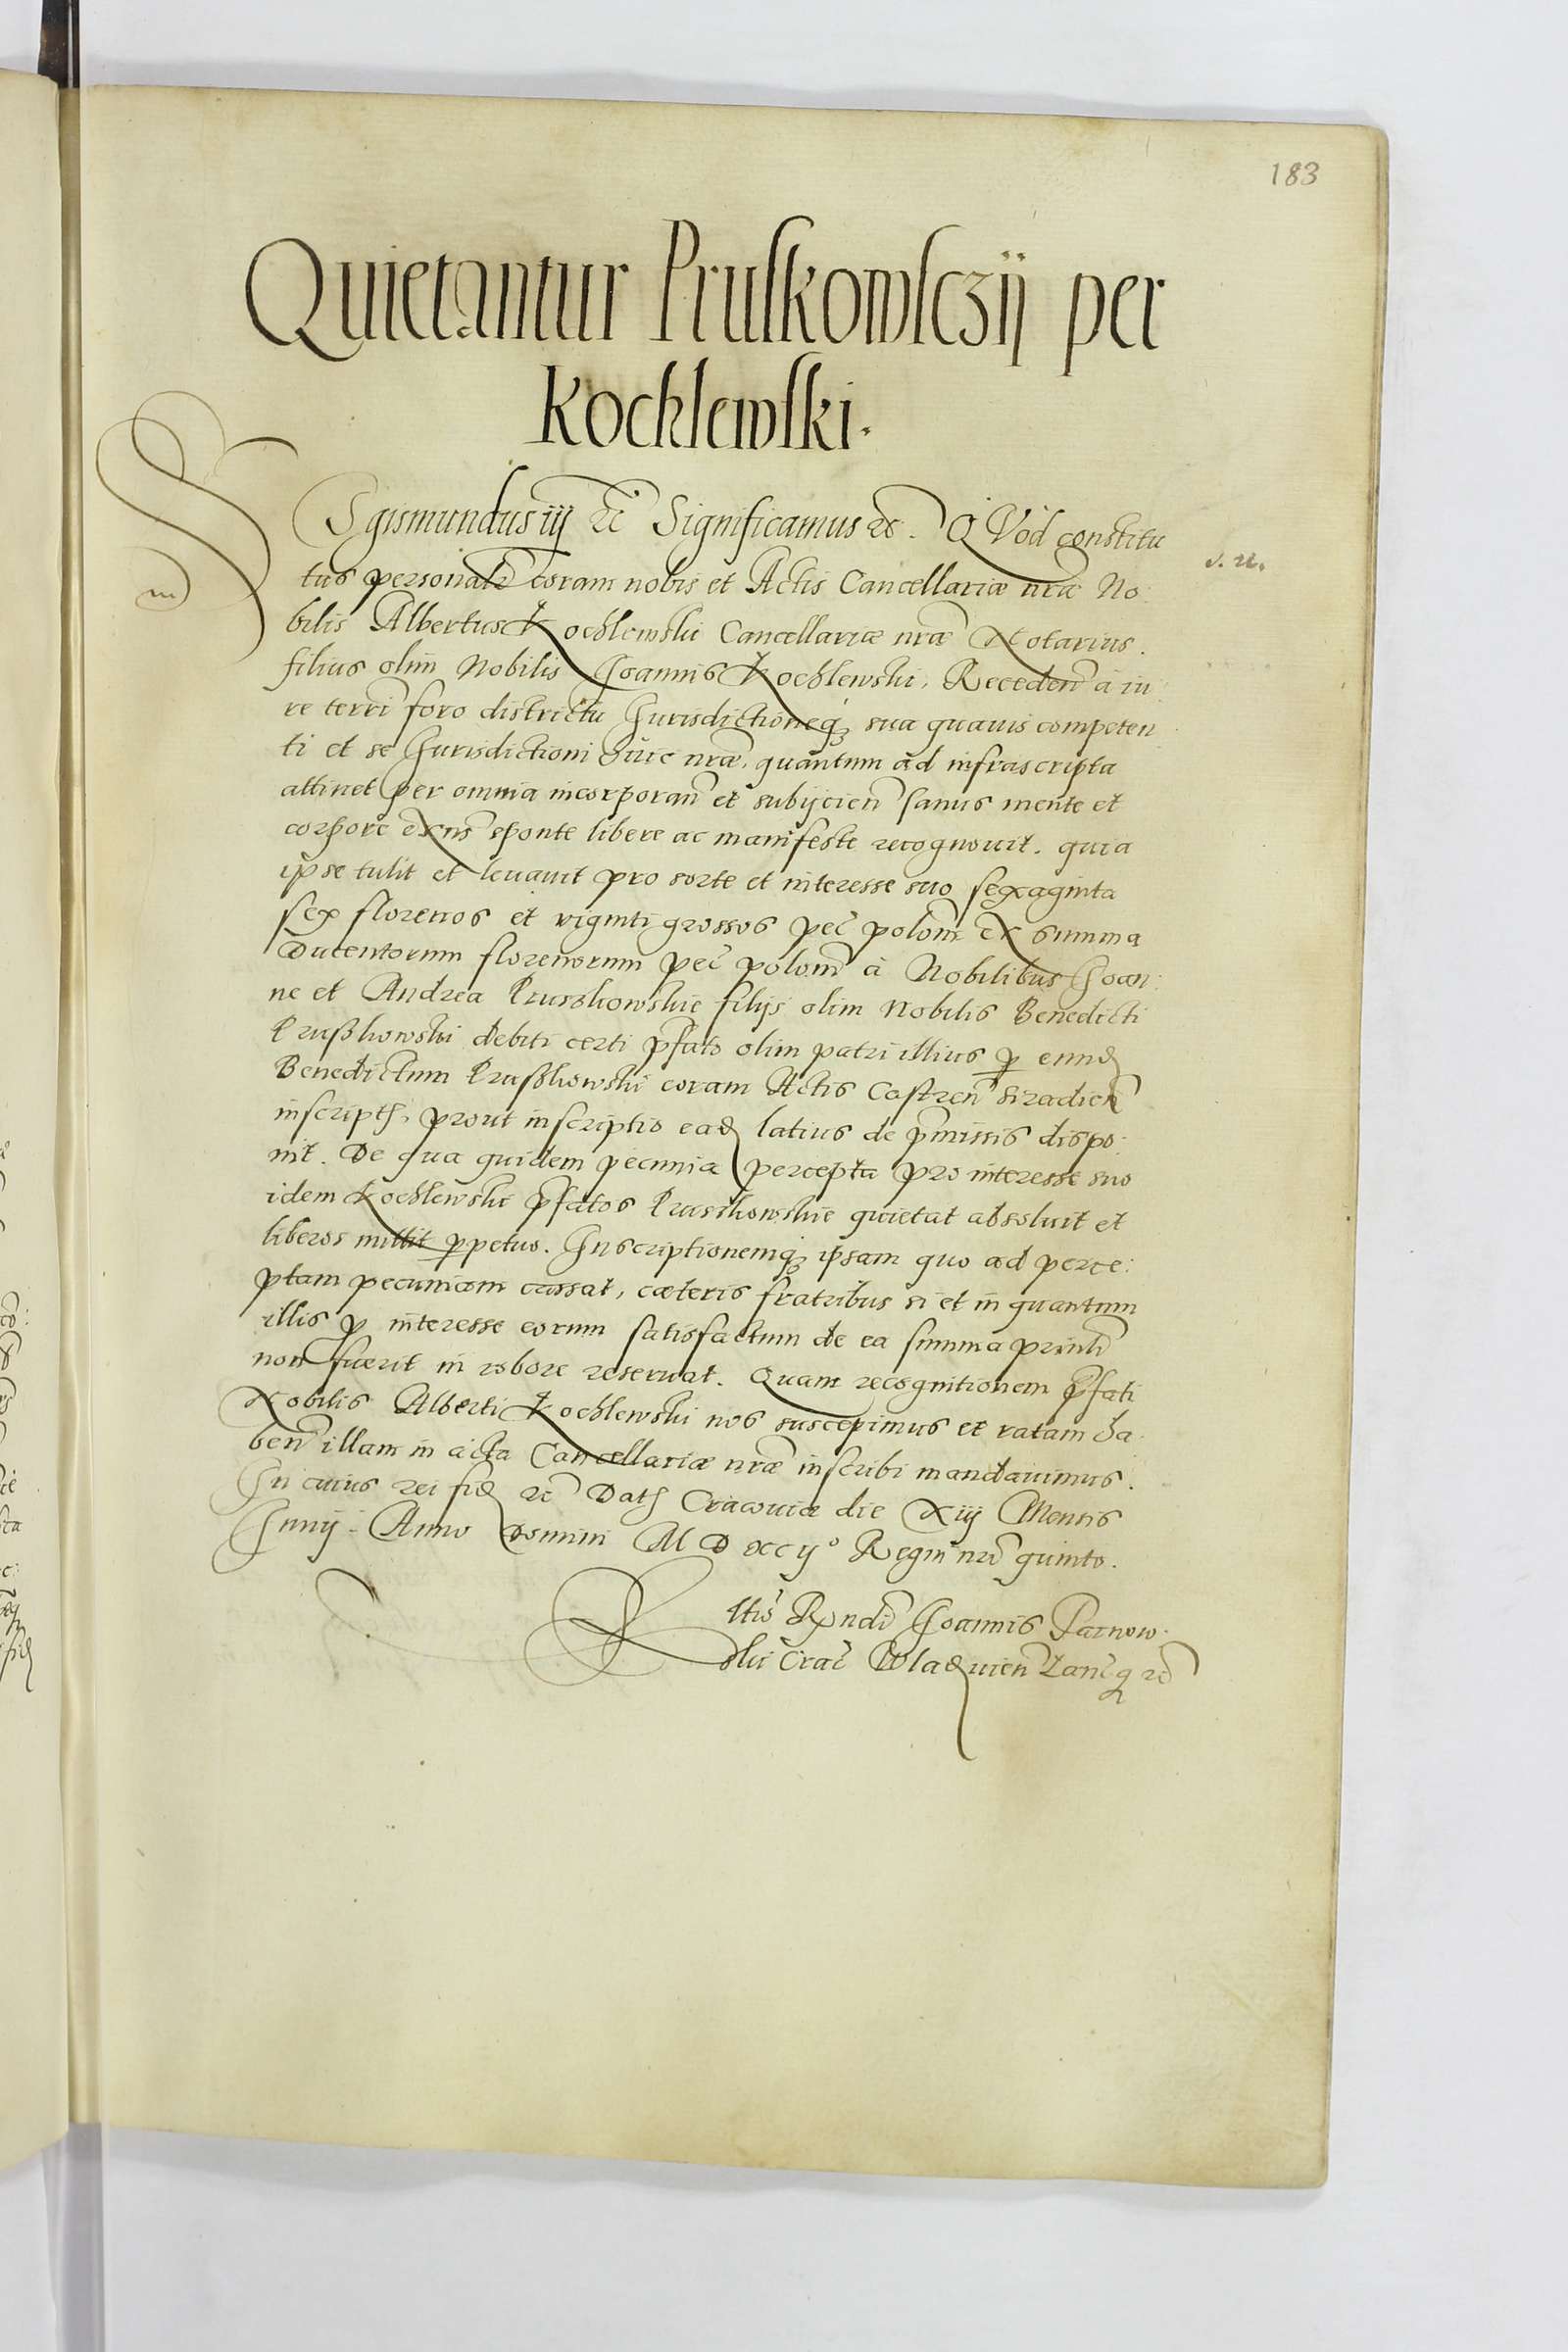 183
Quietantur Pruskowsczij per
Kochlewski.
Sigismundus iij etc̃ Significamus etc. Quod constitu
tus personalr̃ coram nobis et Actis Cancellariæ nr̃æ No:
bilis Albertus Kochlewski Cancellariæ nr̃æ Notarius.
filius olim Nobilis Joannis Kochlewski, Receden̄ à iu
re terrī foro districtu Jurisdictioneq; sua quauis competen
ti et se Jurisdictioni huic nr̃æ, quantum ad infrascripta
attinet per omnia incorporan̄ et subijcien̄ sanus mente et
corpore exn̄s sponte libere ac manifeste recognouit. quia
ipse tulit et leuauit pro sorte et interesse suo sexaginta
sex florenos et viginti grossos pec̄ polon̄ ex summa
Ducentorum florenorum pec̄ polon̄ à Nobilibus Joan:
ne et Andrea Pruszkowskie filijs olim Nobilis Benedicti
Prußkowski debiti certi p̄fato olim patri illius p eund
Benedictum Prußkowski coram Actis Castren̄ Siradien̄
inscripts, prout inscriptio ead latius de p̄missis dispo:
nit. De qua quidem pecunia percepta pro interesse suo
idem Kochlewski p̄fatos Pruszkowskie quietat absoluit et
liberos mittit ppetuo. Inscriptionemq; ipsam quo ad perce:
ptam pecuniam cassat, cæteris fratribus si et in quantum
illis p interesse eorum satisfactum de ea summa prinl̄i
non fuerit in robore reseruat. Quam recognitionem p̄fati
Nobilis Alberti Kochlewski nos suscepimus et ratam ha:
ben̄ illam in acta Cancellariæ nr̃æ inscribi mandauimus.
In cuius rei fid etc̃ Dat Cracouiæ die Xiij Mensis
Junij. Anno Domini M D XCijº Regni nr̄i quinto.
Rltio Rn̄di Joannis Tarnow
ski Crac̄ Wladvien̄ Lanc̄q etc̃